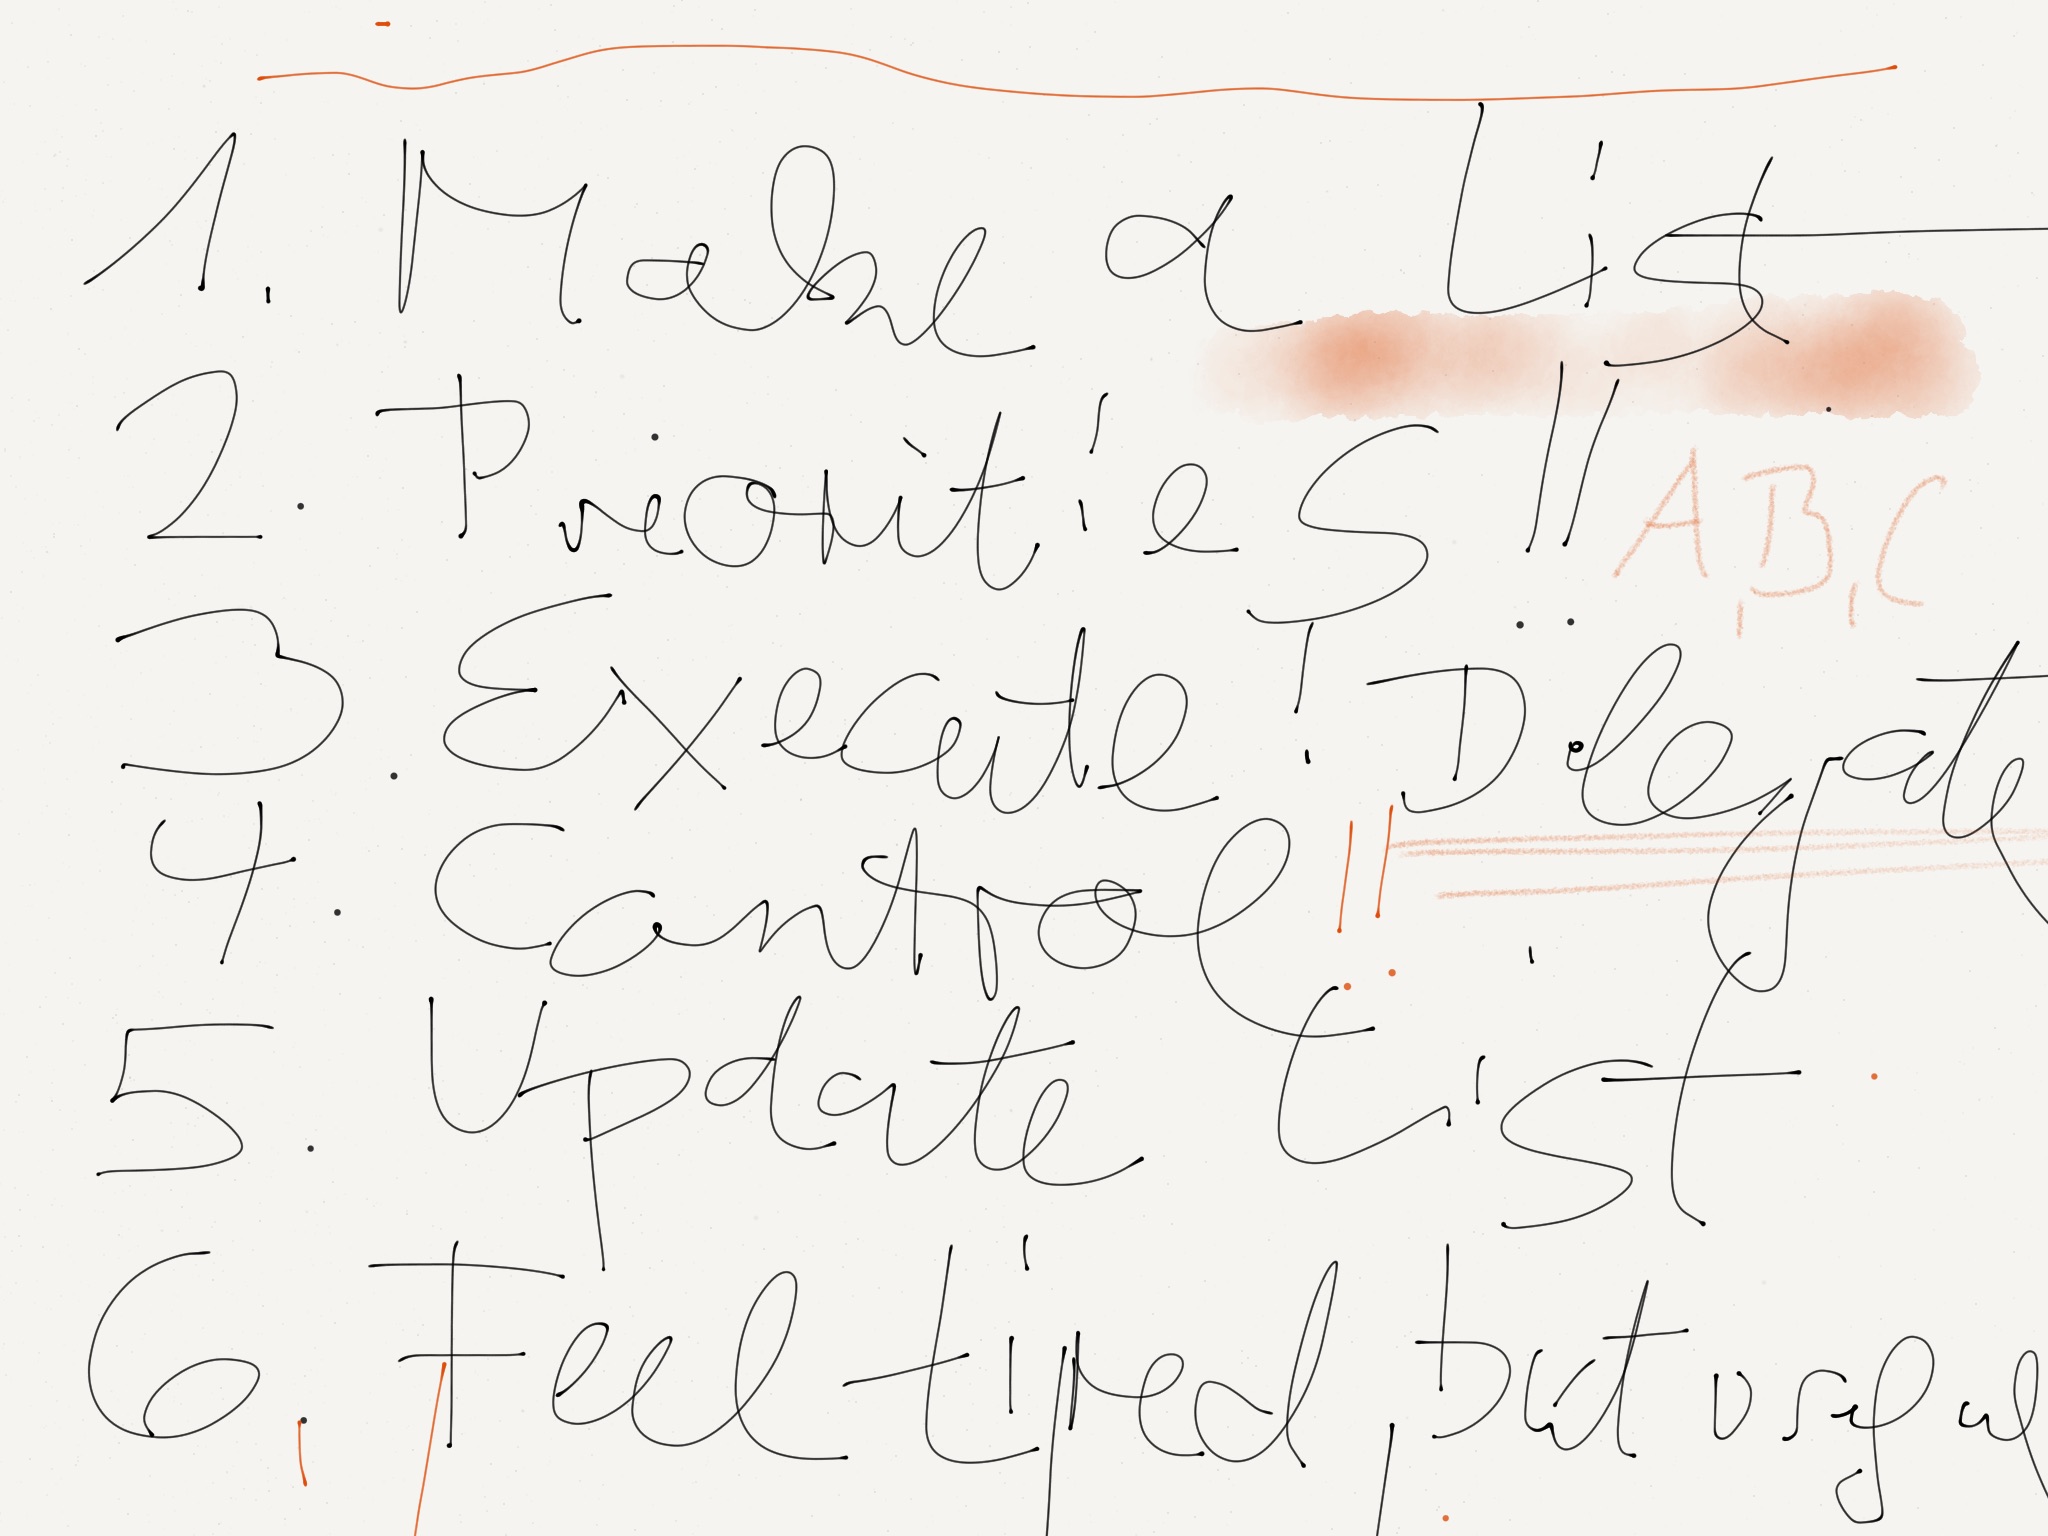 1. Make a List
2. Priorities!! A, B, C
3. Execute! Delegate
4. Control!!
5. Update List
6. Feel tired, but useful